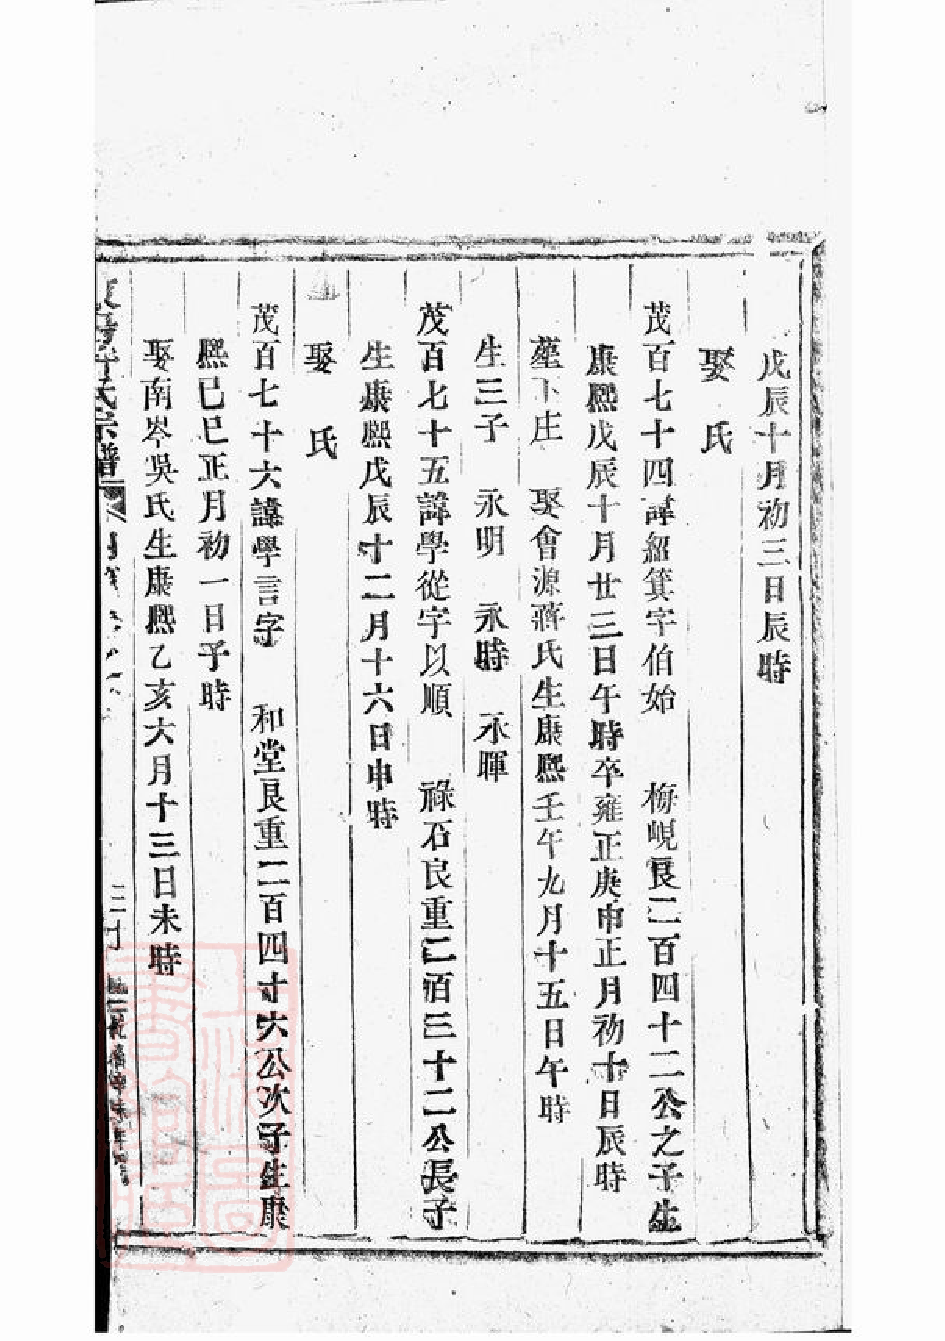 戊辰十月初三日辰時
娶　氏
茂百七十四諱紹箕字伯始　梅峴艮二百四十二公之子生
康熙戊辰十月廿三日午時卒雍正庚申正月初十日辰時
塟下庄　娶會源蔣氏生康熙壬午九月十五日午時
生三子　永明　永時　永暉
茂百七十五諱學從字以順　祿石艮重二百三十二公長子
生康熙戊辰十二月十六日申時
娶　氏
茂百七十六諱學言字　和堂艮重二百四十六公次子生康
熙己巳正月初一日子時
娶南岑吳氏生康熙乙亥六月十三日未時
氏宗譜